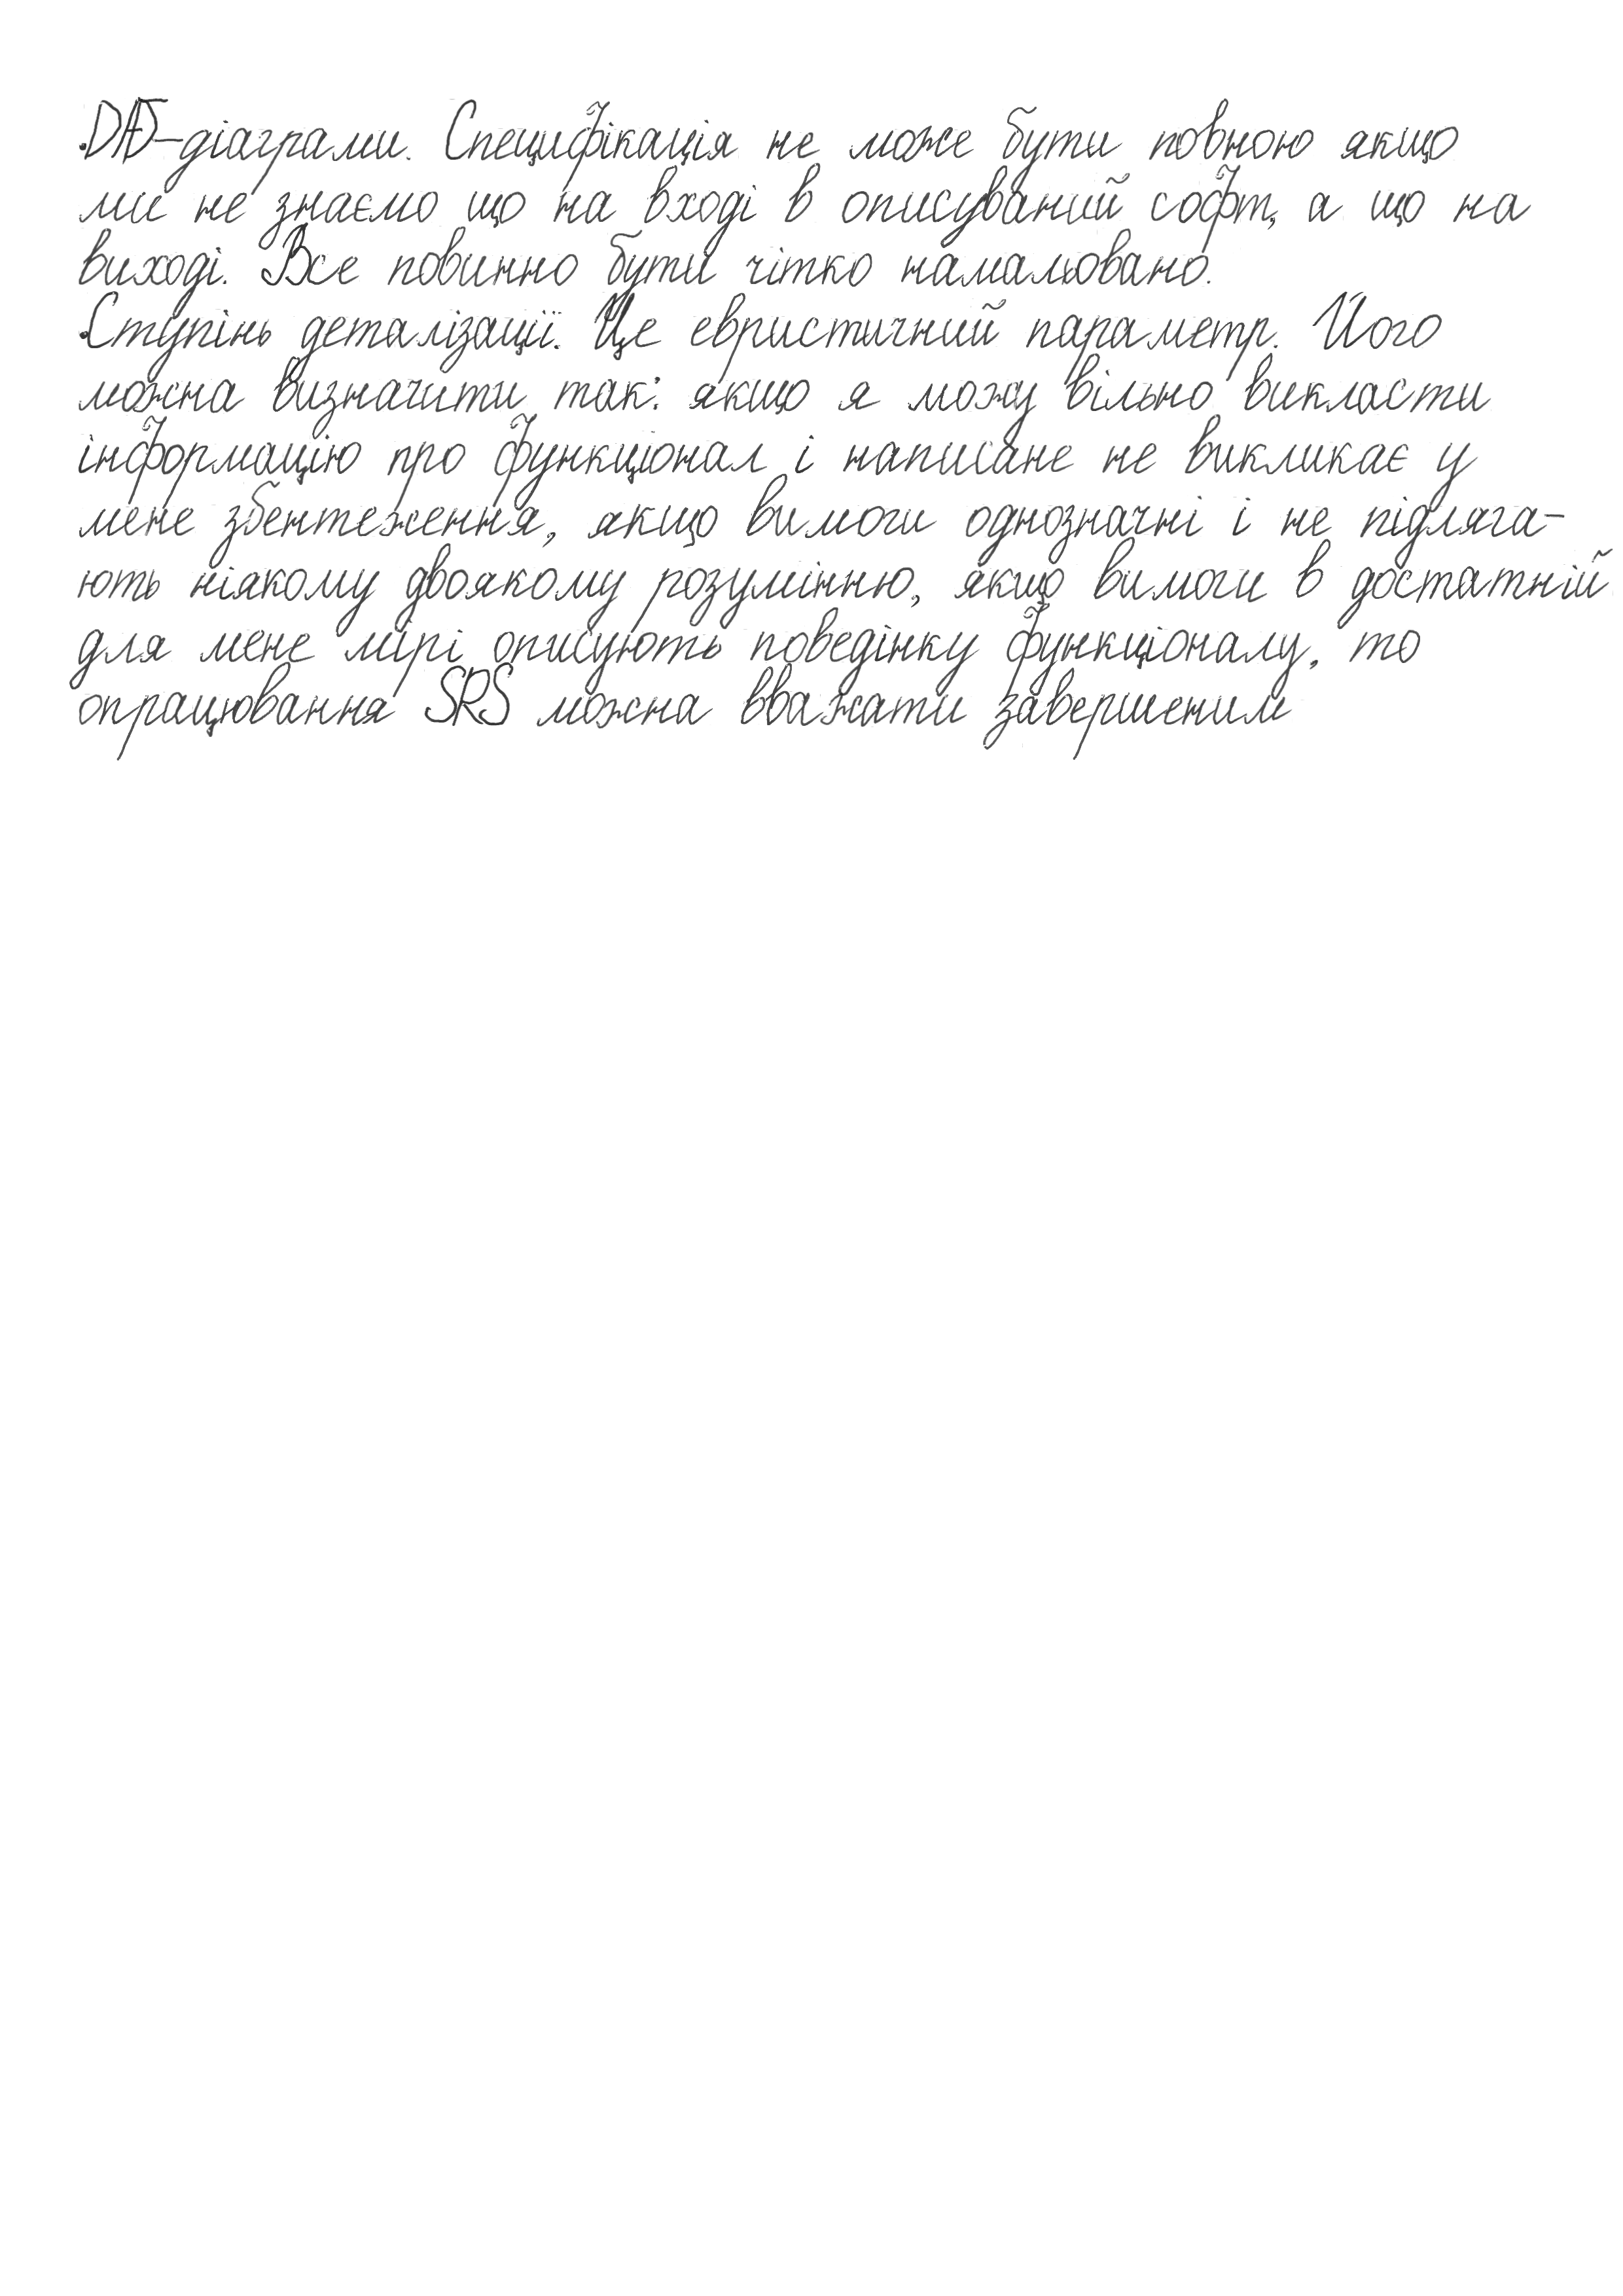 ·DFD-діаграми. Специфікація не може бути повною якщо
ми не знаємо що на вході в описуваний софт, а що на
виході. Все повинно бути чітко намальовано.
·Ступінь деталізації. Це евристичний параметр. Його
можна визначити так: якщо я можу вільно викласти
інформацію про функціонал і написане не викликає у
мене збентеження, якщо вимоги однозначні і не підляга-
ють ніякому двоякому розумінню, якщо вимоги в достатній
для мене мірі описують поведінку функціоналу, то
опрацювання SRS можна вважати завершеним